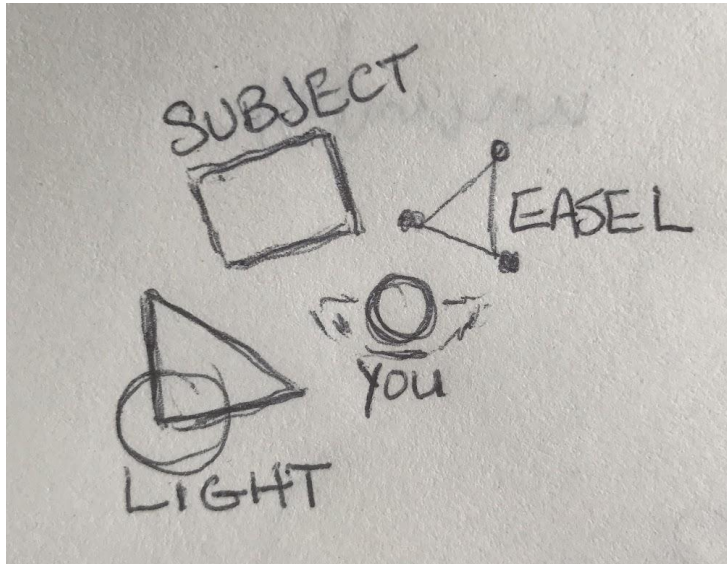 SUBJECT
EASEL
YOU
LIGHT